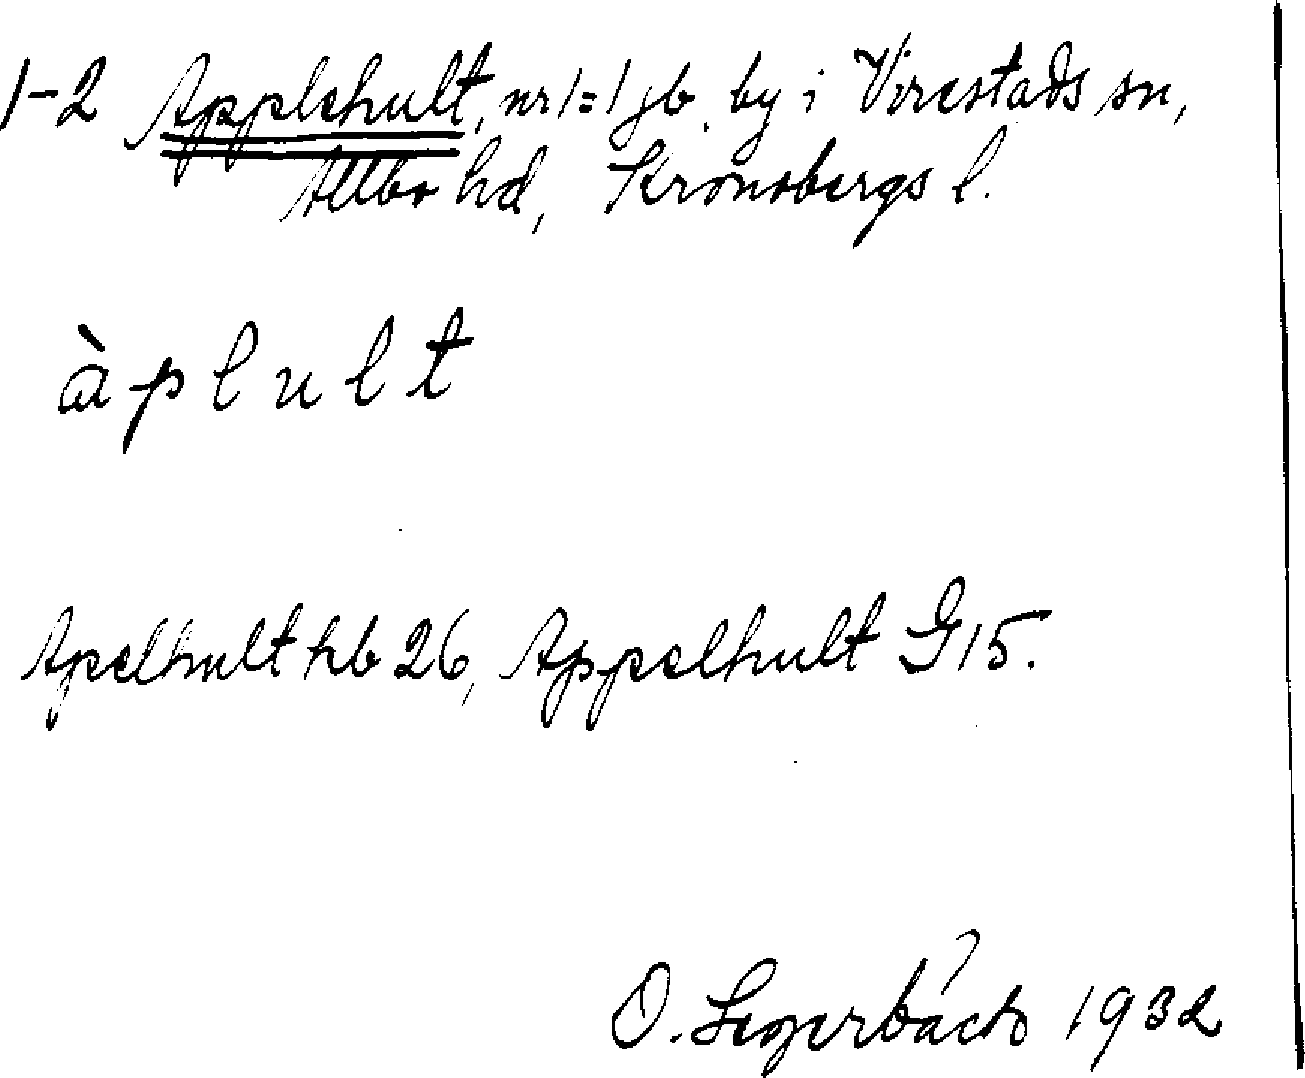 1-2 Applehult, nr 1=1 jb. by i Virestads sn,
Allbo hd, Kronobergs l.
àplult
Apelhult hb 26, Appelhult G 15.
O. Segerbäck 1932